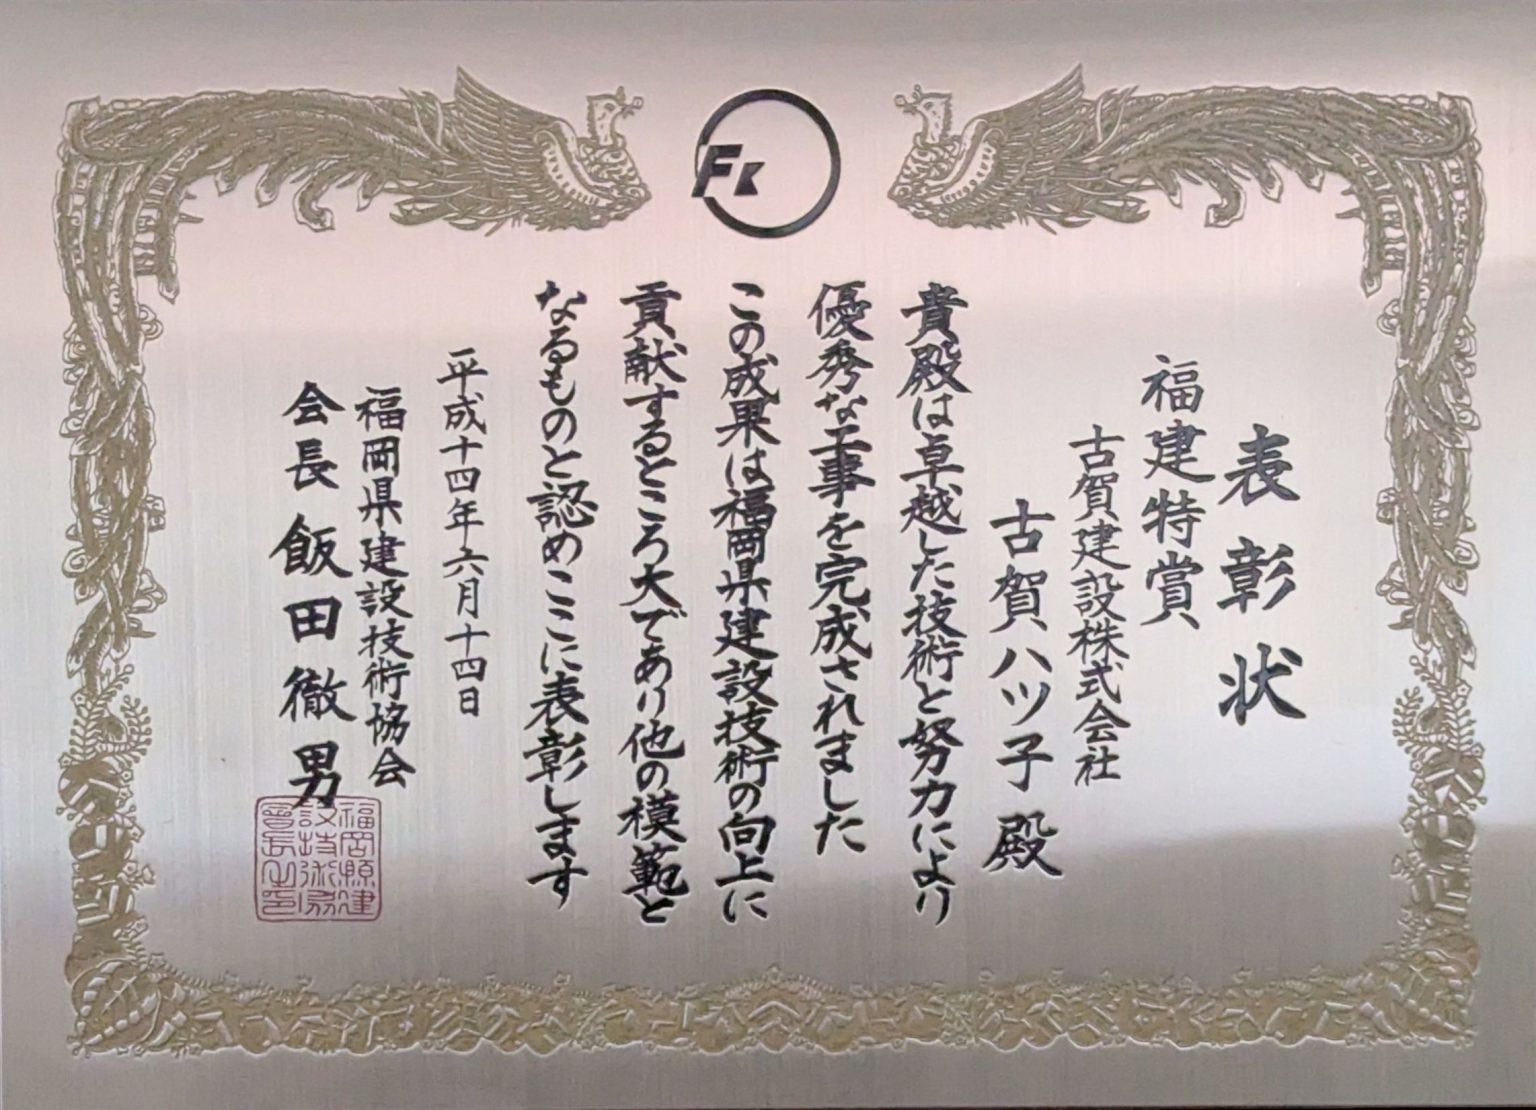 Fk
表彰状
福建特賞
古賀建設株式会社
古賀ハツ子殿
貴殿は卓越した技術と努力により
優秀な工事を完成されました
この成果は福岡県建設技術の向上に
貢献するところ大であり他の模範と
なるものと認めここに表彰します
平成十四年六月十四日
福岡県建設技術協会
会長飯田徹男